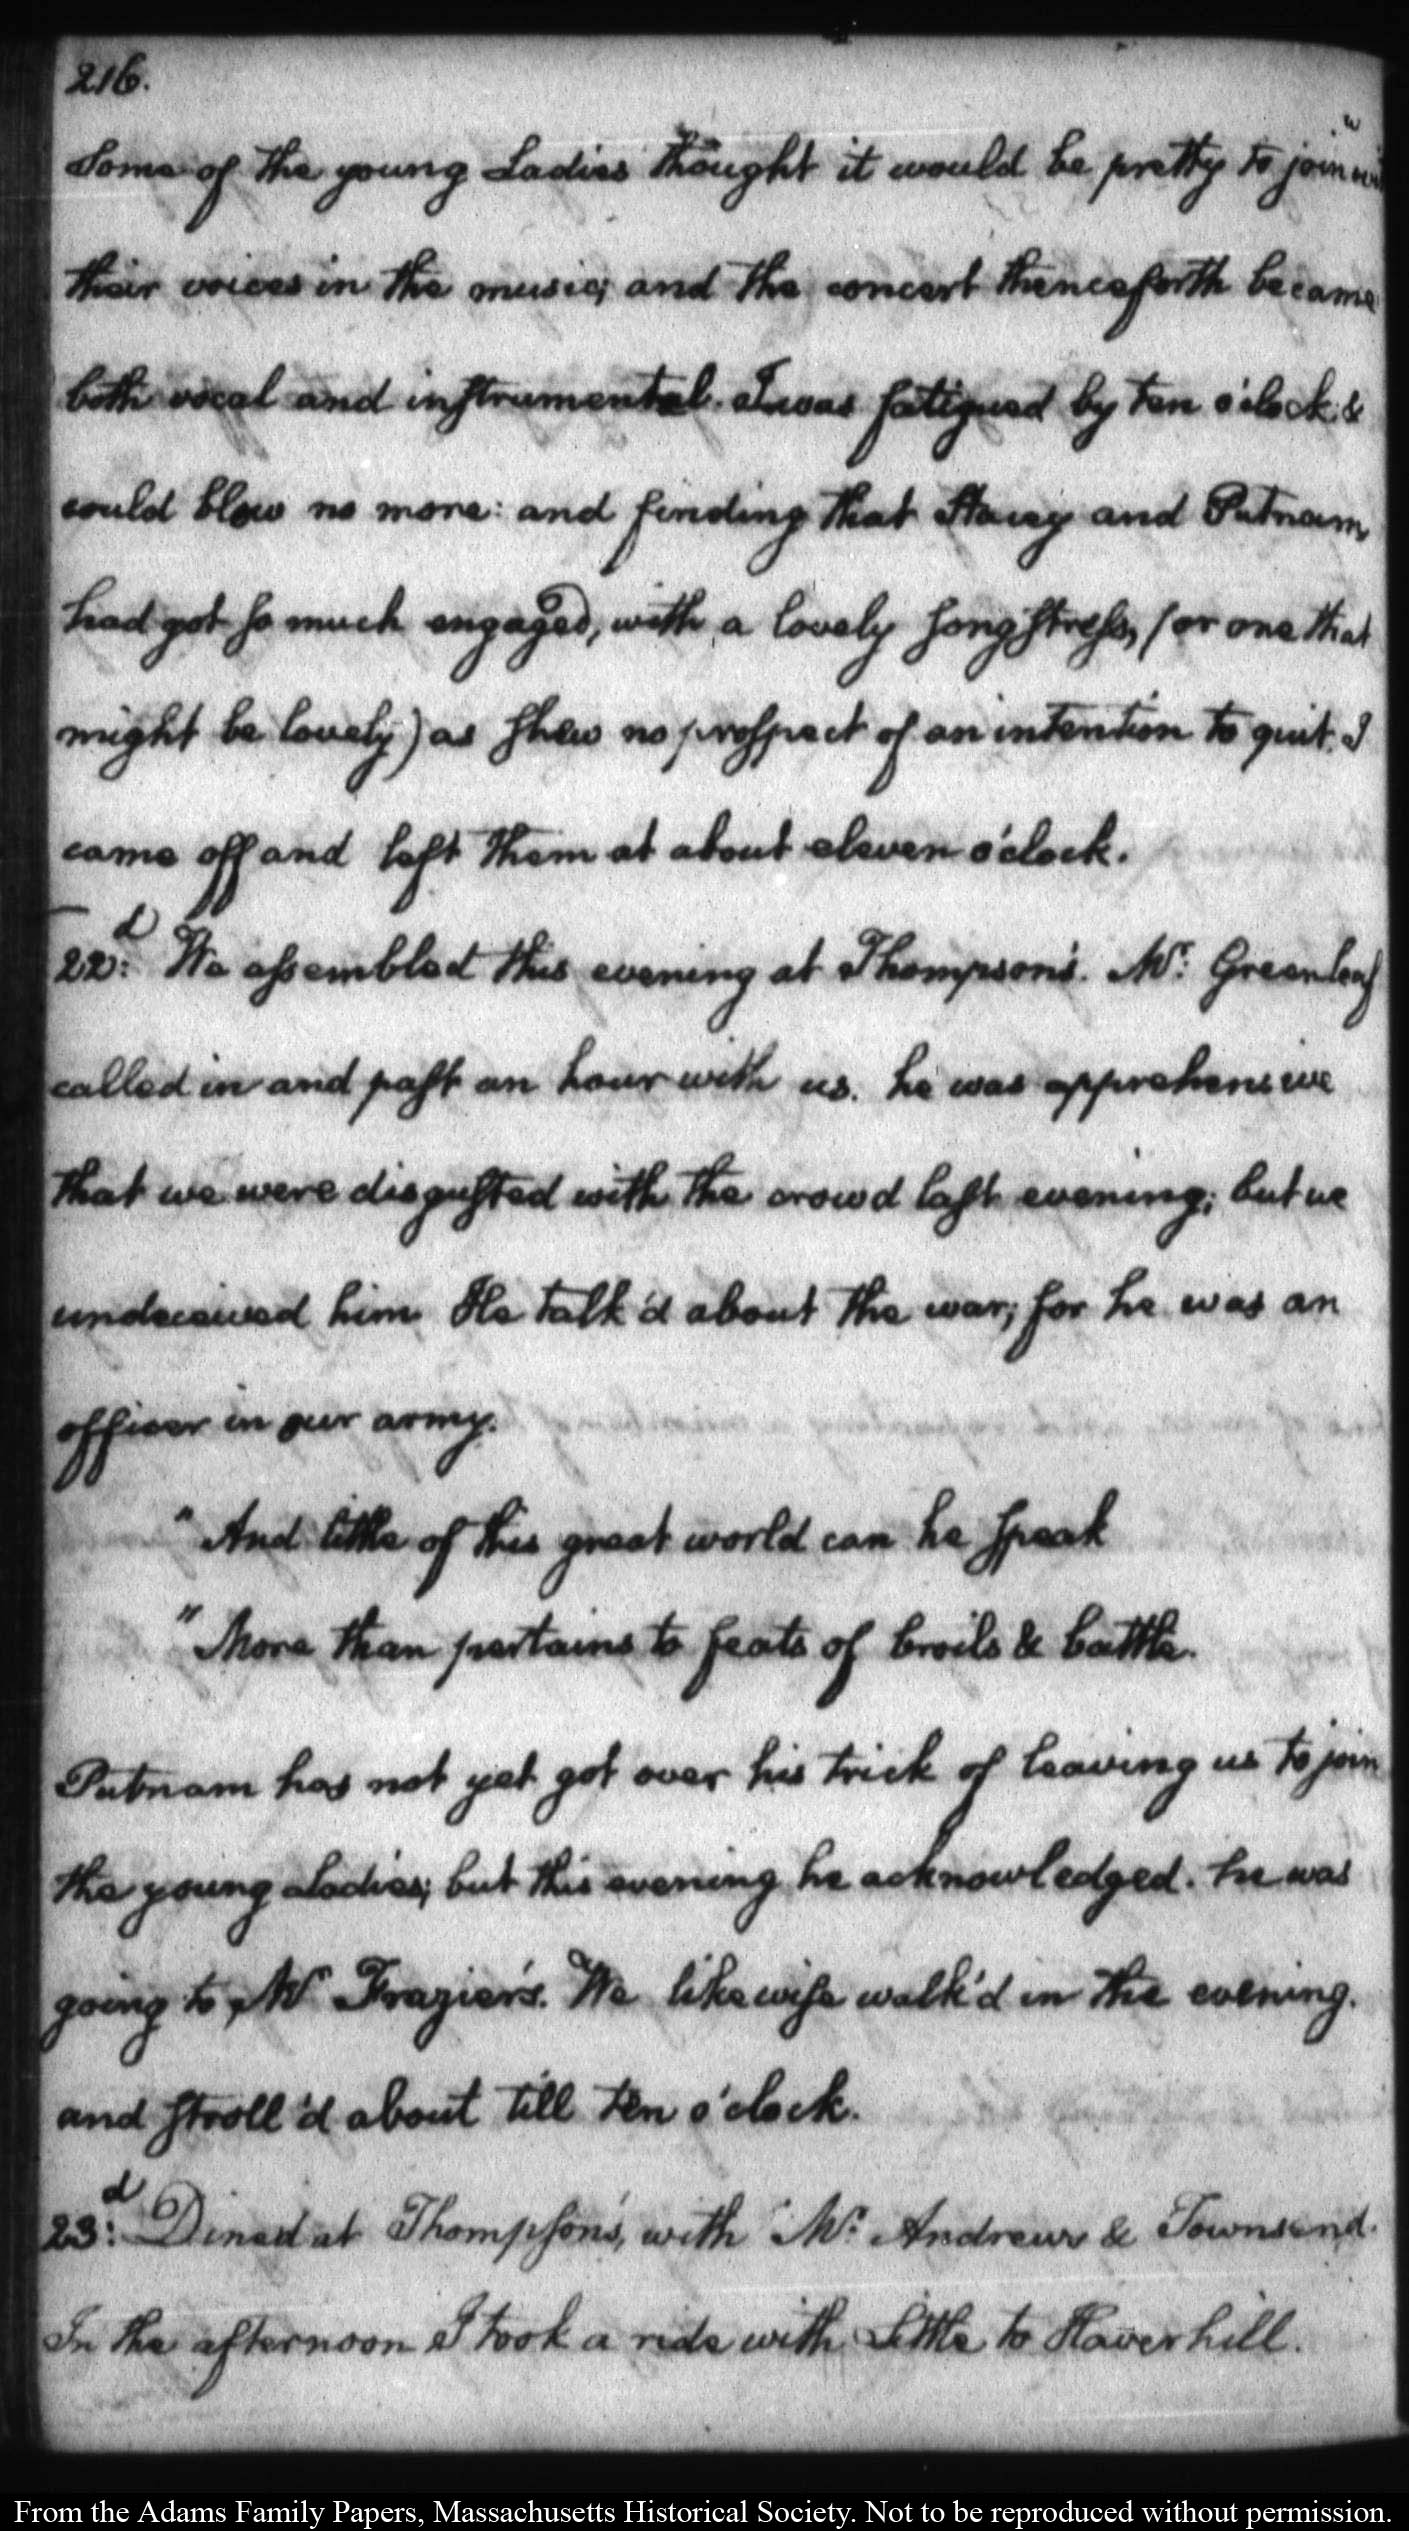 216.
Some of the young Ladies thought it would be pretty to join
their voices in the music; and the concert thenceforth became
both vocal and instrumental. I was fatigued by ten o'clock &
could blow no more: and finding that Stacey and Putnam,
had got so much engaged, with a lovely songstress, (or one that
might be lovely) as shew no prospect of an intention to quit. I
came off and left them at about eleven o'clock.
22d: We assembled this evening at Thompson's. Mr: Greenleaf
called in and past an hour with us. he was apprehensive
that we were disgusted with the crowd last evening; but we
undeceived him. He talk'd about the war; for he was an
officer in our army.
"And little of this great world can he speak
"More than pertains to feats of broils & battle.
Putnam has not yet got over his trick of leaving us to join
the young Ladies; but this evening he acknowledged. he was
going to Mr Frazier's. We likewise walk'd in the evening.
and stroll'd about till ten o'clock.
23d: Dined at Thompson's, with Mr: Andrews & Townsend.
In the afternoon I took a ride with Little to Haverhill.
From the Adams Family Papers, Massachusetts Historical Society. Not to be reproduced without permission.